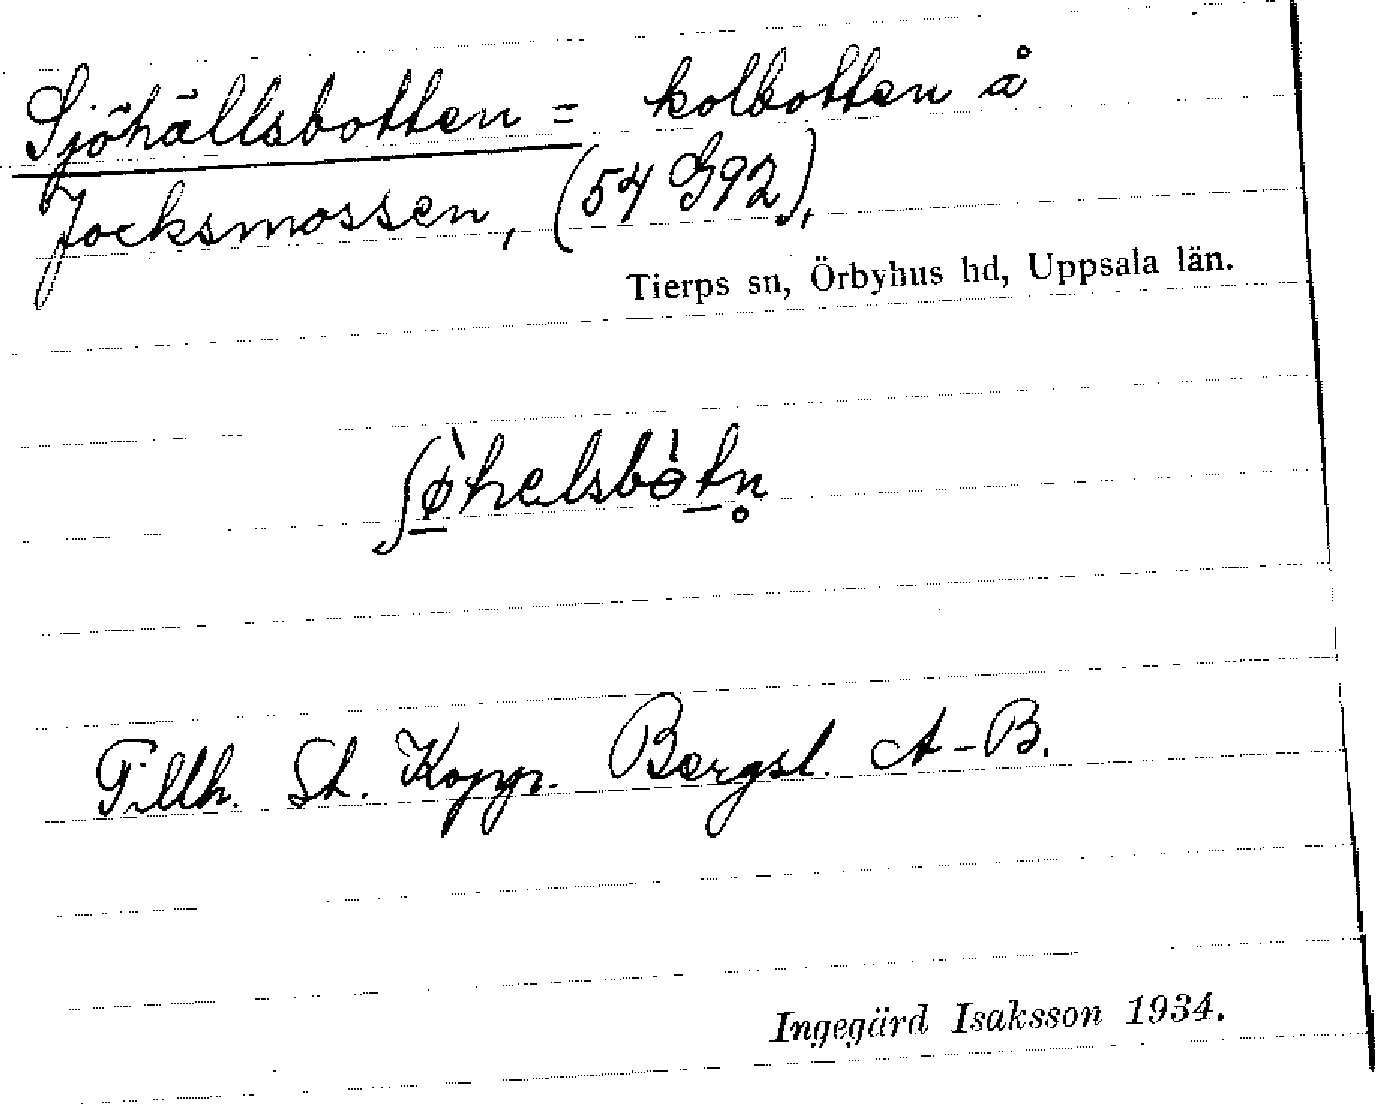 Sjöhällsbotten = kolbotten å
Jocksmossen, (54 G92),
Tierps sn, Örbyhus hd, Uppsala län.
ʃø̀helsbɵ̀tn̥
Tillh. St. Kopp. Bergsl. A-B.
Ingegärd Isaksson 1934.